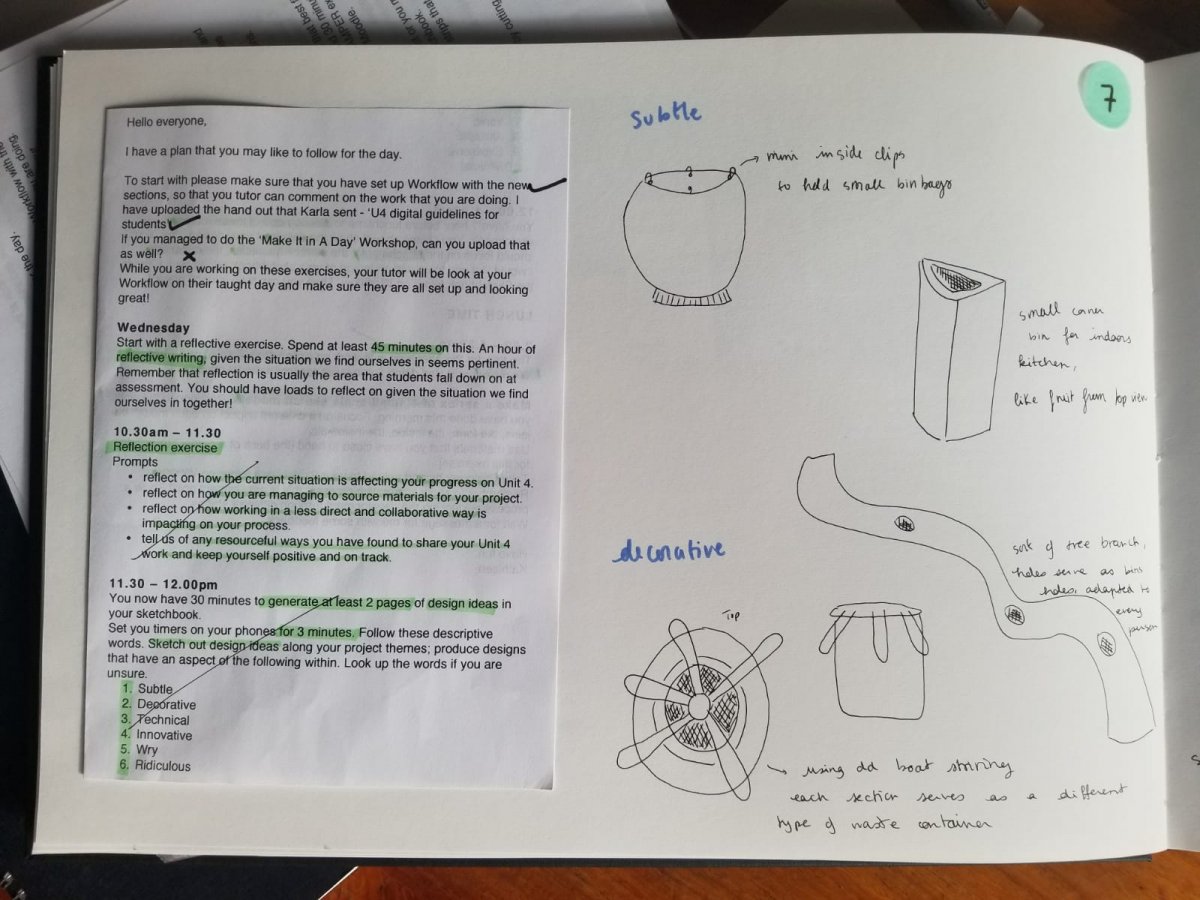 Hello everyone,
I have a plan that you may like to follow for the day.
To start with please make sure that you have set up Workflow with the new
sections, so that you tutor can comment on the work that you are doing. I
have uploaded the hand out that Karla sent - 'U4 digital guidelines for
students'
If you managed to do the 'Make It in A Day' Workshop, can you upload that
as well?
While you are working on these exercises, your tutor will be look at your
Workflow on their taught day and make sure they are all set up and looking
great!
Wednesday
Start with a reflective exercise. Spend at least 45 minutes on this. An hour of
reflective writing, given the situation we find ourselves in seems pertinent.
Remember that reflection is usually the area that students fall down on at
assessment. You should have loads to reflect on given the situation we find
ourselves in together!
10.30am – 11.30
Reflection exercise
Prompts
• reflect on how the current situation is affecting your progress on Unit 4.
• reflect on how you are managing to source materials for your project.
• reflect on how working in a less direct and collaborative way is
impacting on your process.
• tell us of any resourceful ways you have found to share your Unit 4
work and keep yourself positive and on track.
11.30 – 12.00pm
You now have 30 minutes to generate at least 2 pages of design ideas in
your sketchbook.
Set you timers on your phones for 3 minutes. Follow these descriptive
words. Sketch out design ideas along your project themes; produce designs
that have an aspect of the following within. Look up the words if you are
unsure.
1. Subtle
2. Decorative
3. Technical
4. Innovative
5. Wry
6. Ridiculous
7
Subtle
mini inside clips
to hold small bin bags
small corner
bin for indoors
kitchen,
like fruit from top view
sort of tree branch,
holes serve as bins
holes, adapted to
every
person
decorative
Top
using old boat
each section serves as a different
type of waste container